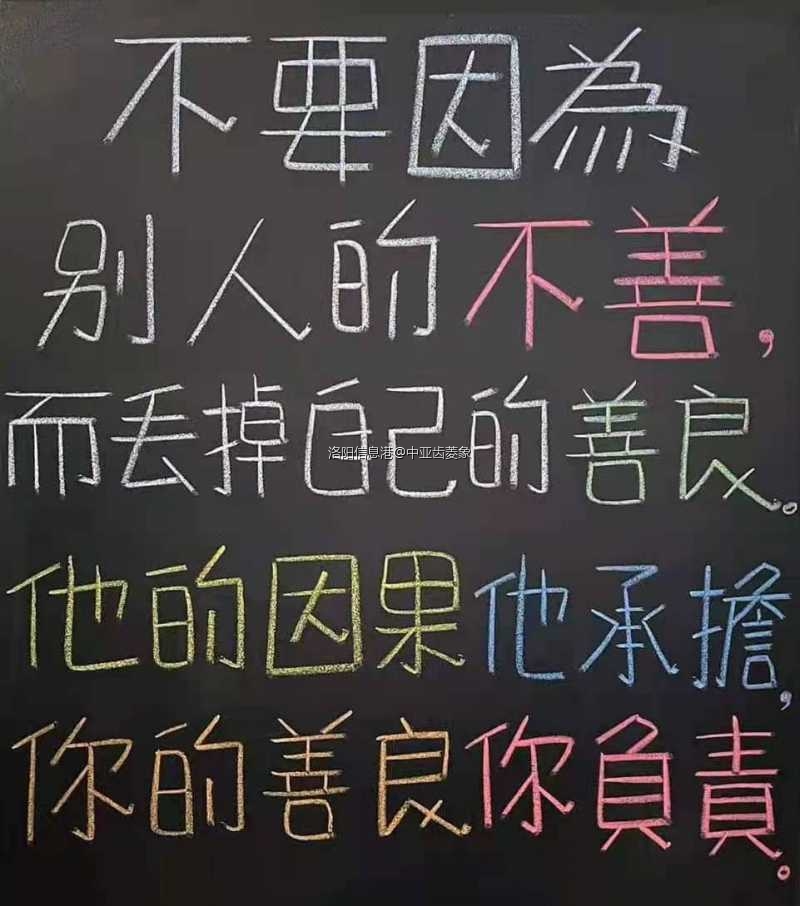 不要因為
别人的不善,
而丢掉自己的善良。
洛阳信息港@中亚齿菱象
他的因果他承擔,
你的善良你負責。